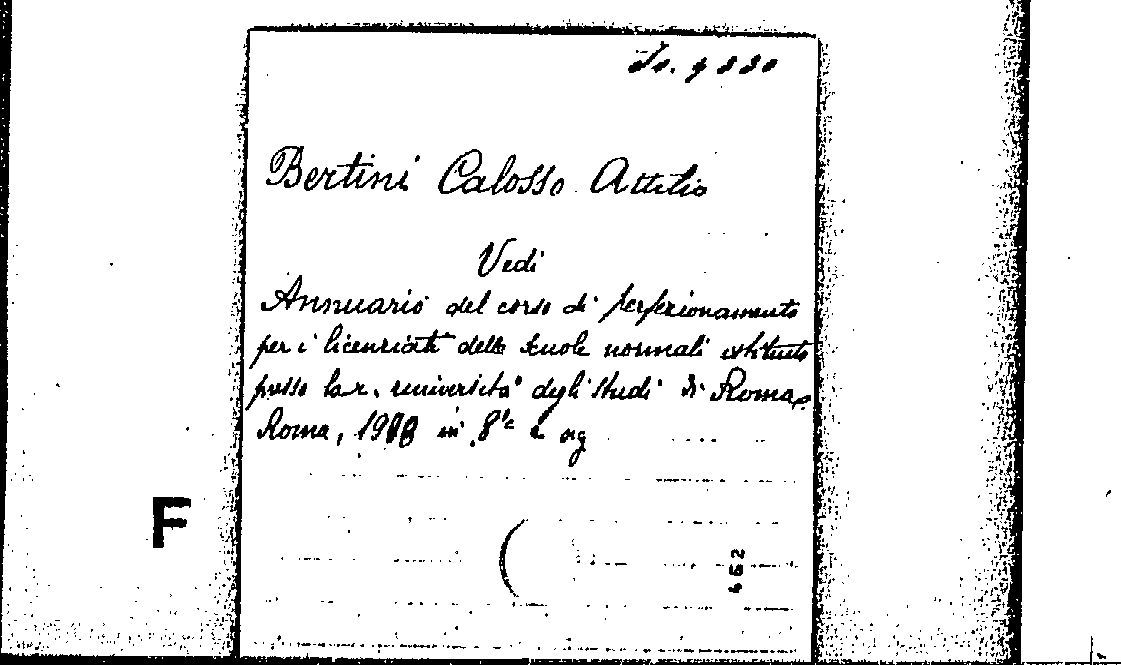 Bertini Calosso Attilio
Vedi
Annuario del corso di perfezionamento
per i licenziati delle scuole normali istituito
presso la r. università degli studi di Roma.
Roma, 19 in 8°
F
462